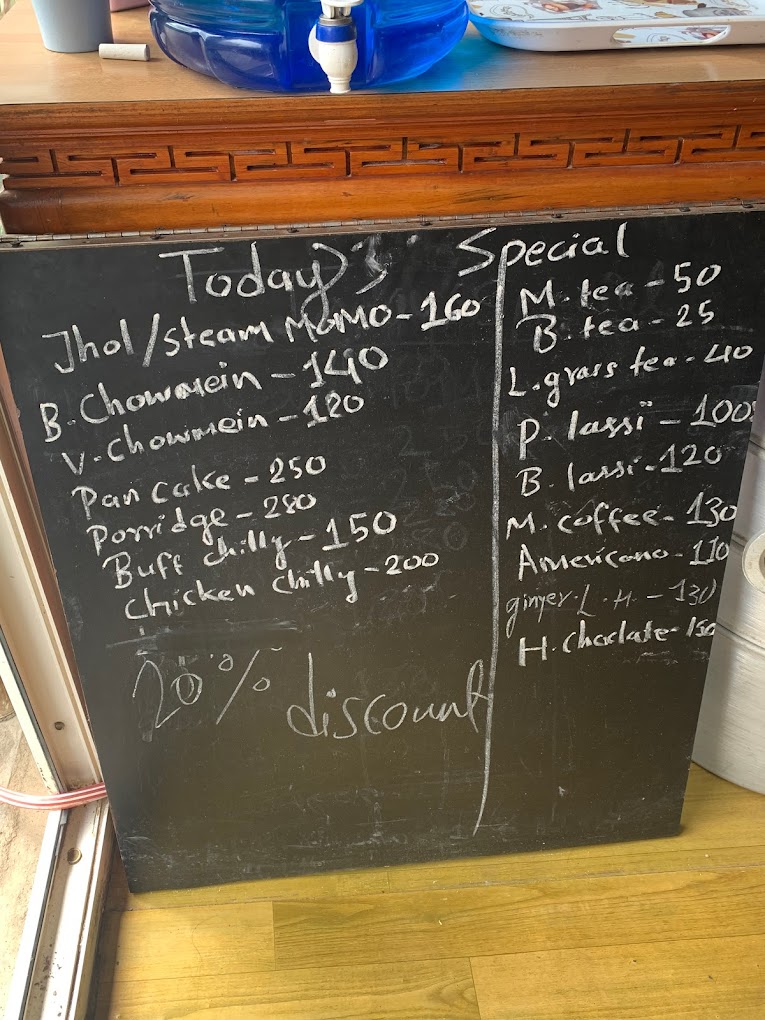 Today's Special
Jhol/Steam MOMO - 160
B. Chowmein - 140
V. Chowmein - 120
Pan cake - 250
Porridge - 280
Buff chilly - 150
Chicken chilly - 200
20% discount
M. tea - 50
B. tea - 25
L. grass tea - 40
P. lassi - 100
B. lassi - 120
M. coffee - 130
Americano - 110
ginger. L. H. - 130
H. choclate - 150